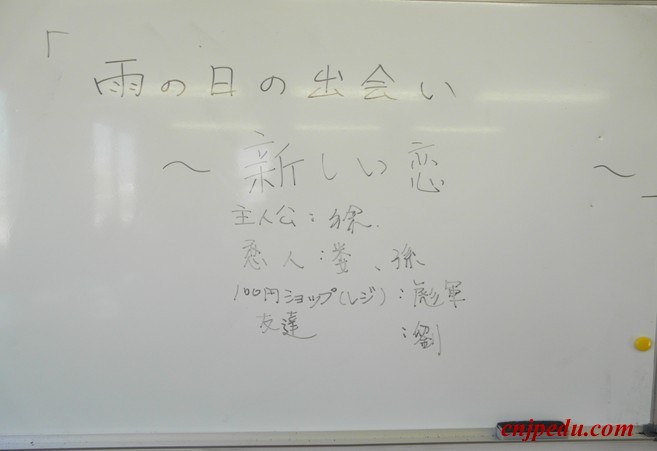 「
雨の日の出会い
～ 新しい恋 ～」
主人公：
恋人： 、孫
100円ショップ(レジ)：彪軍
友達 ：劉
cnjpedu.com